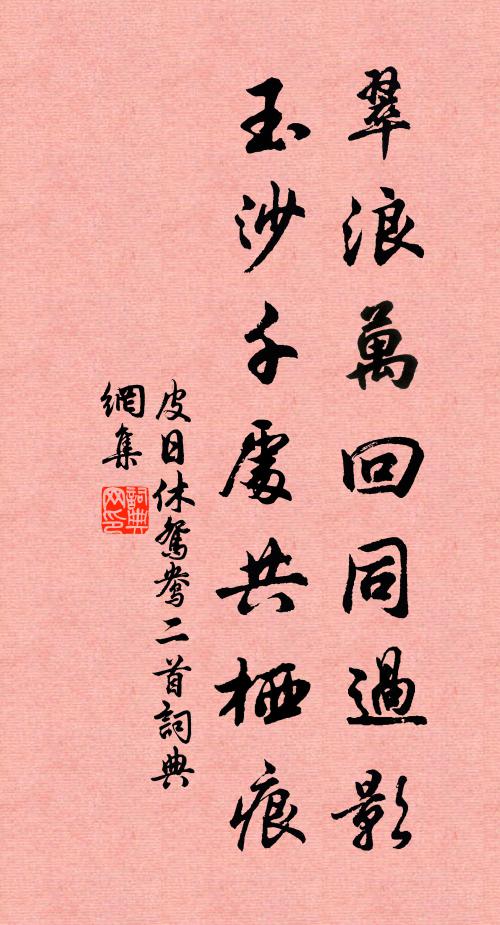 翠浪萬回同過影
玉沙千處共栖痕
皮日休鴛鴦二首詞典
網集
詞典
网印